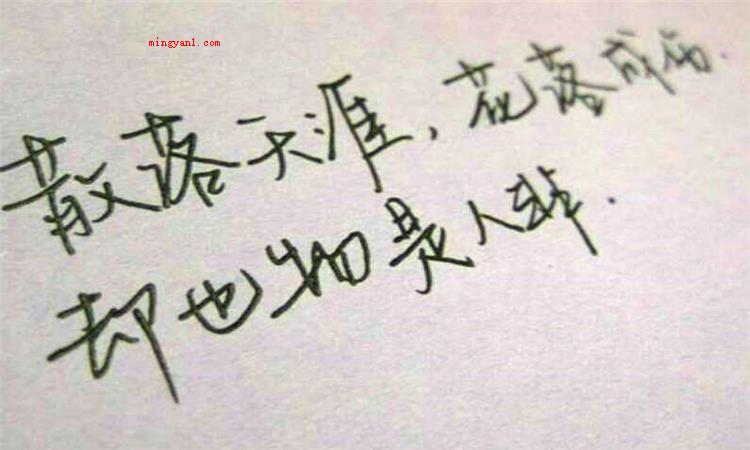 mingyan1.com
散落天涯，花落成伤.
却也物是人非.